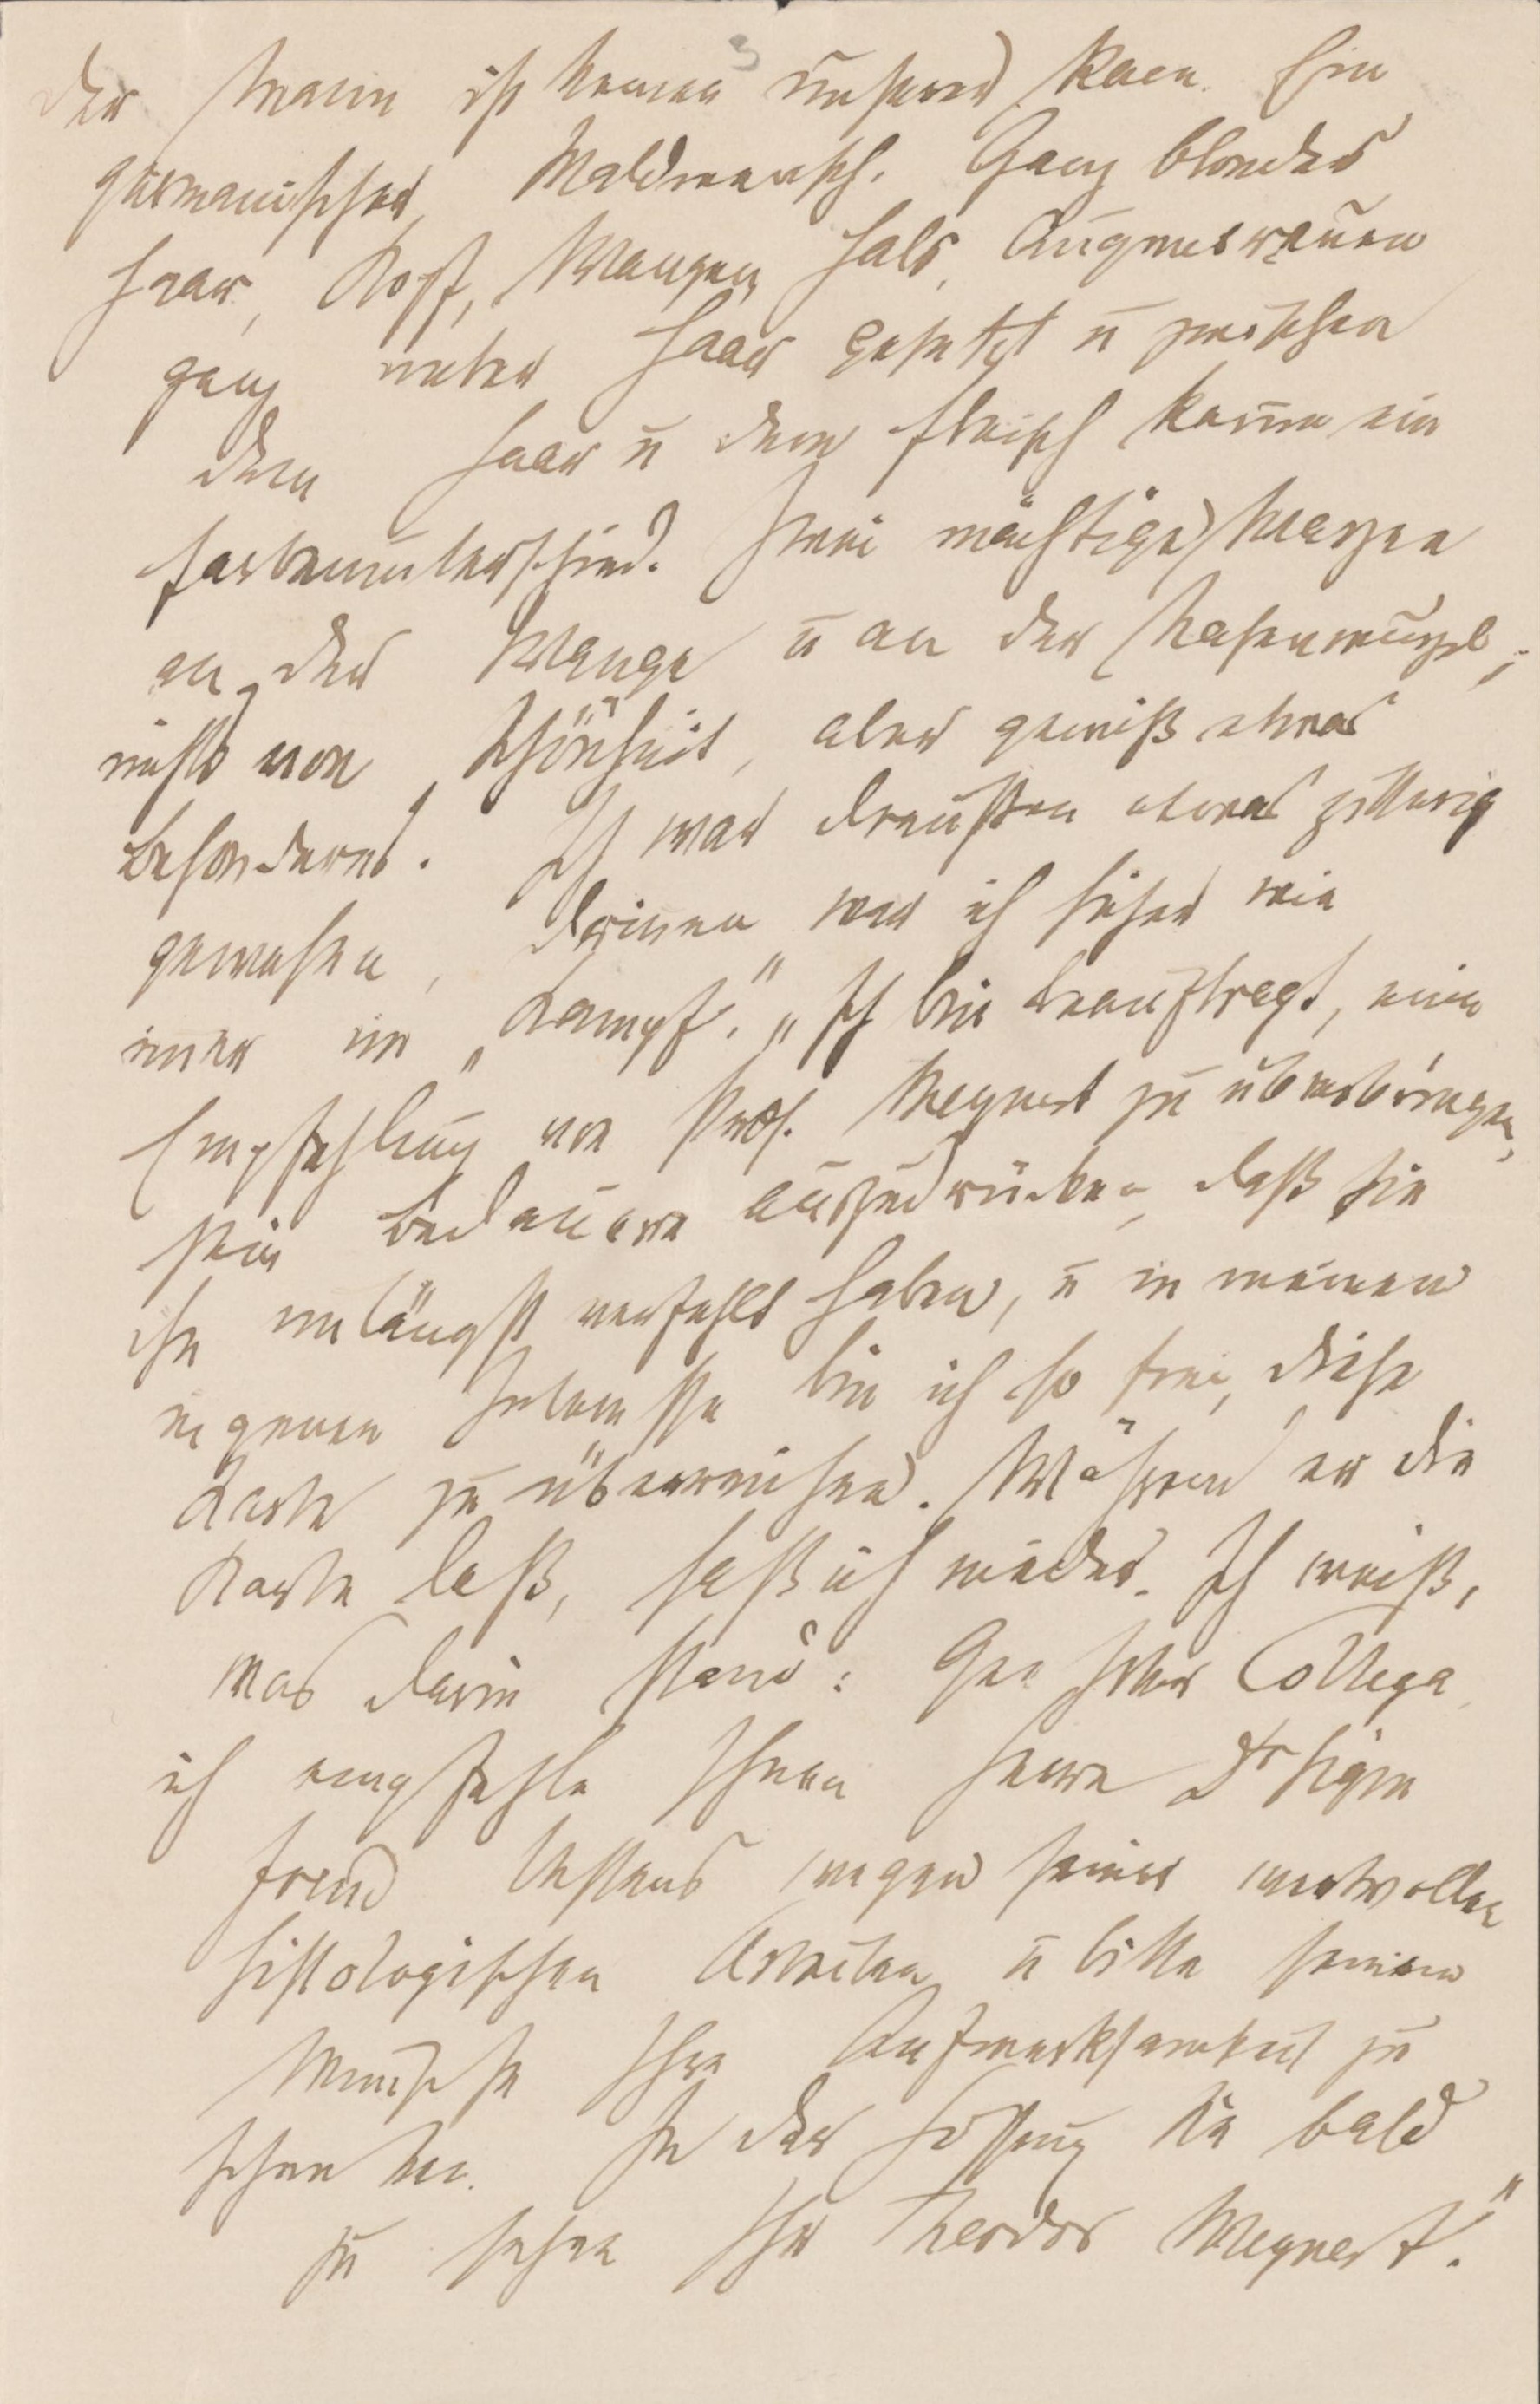 Der Mann ist keiner unserer Race. Ein
germanischer Waldmensch. Ganz blondes
Haar, Kopf, Wangen, Hals, Augenbrauen
ganz unter Haar gesetzt u zwischen
dem Haar u dem Fleisch kaum ein
Farbenunterschied. Zwei mächtige Warzen
an der Wange u an der Nasenwurzel;
nichts von Schönheit, aber gewiß etwas
besonderes. Ich war draußen etwas zitterig
gewesen, drinnen war ich sicher wie
im̅er im „Kampf“. „Ich bin beauftragt, eine
Empfehlung von Prof. Meynert zu überbringen,
sein Bedauern auszudrücken, daß Sie
ihn unlängst verfehlt haben, u in meinem
eigenen Interesse bin ich so frei, diese
Karte zu überreichen. Während er die
Karte laß, saß ich nieder. Ich weiß,
was darin stand: Geehrter Collega,
ich empfehle Ihnen Herrn Dr Sigm
Freud bestens wegen seiner wertvollen
histologischen Arbeiten u bitte seinem
Wunsche Ihre Aufmerksamkeit zu
schenken. In der Hoffnung Sie bald
zu sehen Ihr Theodor Meynert.“